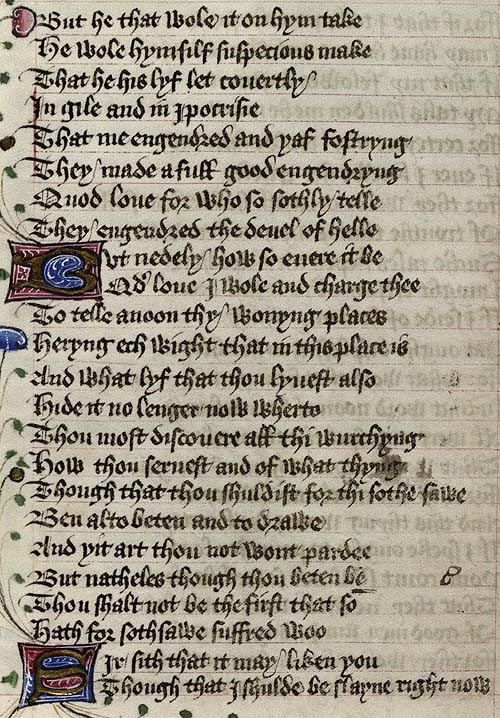 But he that wole it on hym take
He wole hymsilf suspecious make
That he his lyf let couertly/
In gile and in Ipocrisie
That me engendred and yaf fostryng
They/ made a full good engendryng
Quod loue for who so sothly/ telle
They/ engendred the deuel of helle
But nedely/ how so euere it be
Qd' loue I wole and charge thee
To telle anoon thy/ wonyng places
Heryng ech wight that in this place is
And what lyf that thou lyuest also
Hide it no lenger now wherto
Thou most discouere all thi wurchyng
How thou seruest and of what thyng
Though that thou shuldist for thi sothe sawe
Ben al to beten and to drawe
And yit art thou not wont pardee
But natheles though thou beten be
Thou shalt not be the first that so
Hath for soth sawe suffred woo
Sir sith that it may/ liken you
Though that I shulde be slayne right now